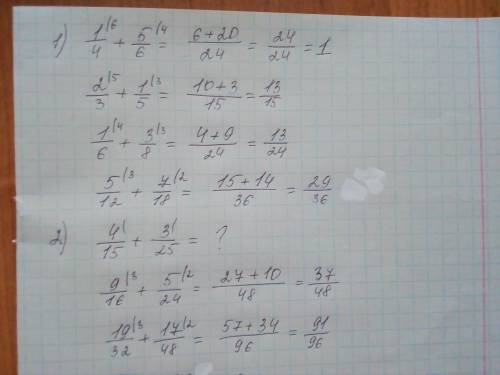 1) 1/4 \6 + 5/6 \4 = 6+20/24 = 24/24 = 1
2/3 \5 + 1/5 \3 = 10+3/15 = 13/15
1/6 \4 + 3/8 \3 = 4+9/24 = 13/24
5/12 \3 + 7/18 \2 = 15+14/36 = 29/36
2) 4/15 \ + 3/25 \ = ?
9/16 \3 + 5/24 \2 = 27+10/48 = 37/48
19/32 \3 + 17/48 \2 = 57+34/96 = 91/96